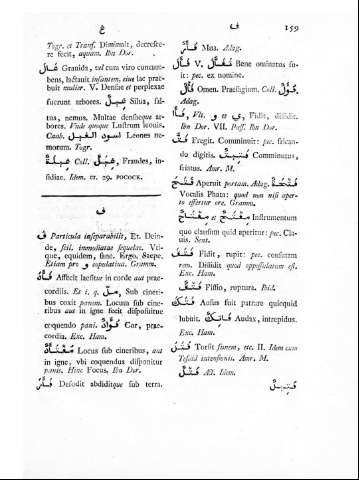 غ ف 159
Togr. et Trans. Diminuit, decresce-
re fecit, aquam. Ibn Dor.
غَالَ Gravida, vel cum viro concum-
bens, lactavit infantem, eive lac præ-
buit mulier. V. Densæ et perplexæ
fuerunt arbores. غِيلٌ Silva, sal-
tus, nemus. Multæ densæque ar-
bores. Vnde quoque Lustrum leonis.
Caab. اسود الغيل Leones ne-
morum. Togr.
غِيلَةٌ Coll. غِيَلٌ, Fraudes, in-
sidiæ. Idem. et. 29. POCOCK.
ف
ف Particula inseparabilis, Et. Dein-
de, scil. immediatæ sequelæ. Vti-
que, equidem, sane. Ergo. Sæpe.
Etiam pro و copulativa. Gramm.
فَأَدَ Affecit læsitve in corde aut præ-
cordiis. Et i. q. مَلَّ, Sub cineri-
bus coxit panem. Locum sub cine-
ribus aut in igne fecit disposuitve
coquendo pani. فُوَادٌ Cor, præ-
cordia. Exc. Ham.
مُفْتَأَدٌ Locus sub cineribus, aut
in igne, vbi coquendus disponitur
panis. Hinc Focus, Ibn Dor.
فَأَرَ Defodit abdiditque sub terra.
فَأْرٌ Mus. Adag.
فَالَ V. تَفَأَّلَ Bene ominatus fu-
it: pec. ex nomine.
فَالٌ Omen. Præsagium. Coll. فُوُلٌ
Adag.
فَأَا, Vlt. و et ي, Fidit, diffidit.
Ibn Dor. VII. Pass. Ibn Dor.
فَتَّ Fregit. Comminuit: pec. frican-
do digitis. فَتِيتٌ Comminutus,
friatus. Anr. M.
فَتَحَ Aperuit portam. Adag. فَتْحَةٌ
Vocalis Phata: quod non nisi aper-
to effertur ore. Gramm.
مِفْتَحٌ et مِفْتَاحٌ Instrumentum
quo clausum quid aperitur: pec. Cla-
uis. Sent.
فَتَقَ Fidit, rupit: pec. consutam
rem. Dissidit quod oppositulatum est.
Exc. Ham.
فَتْقٌ Fissio, ruptura. Ibid.
فَتَكَ Ausus fuit patrare quicquid
lubuit. فَاتِكٌ Audax, intrepidus.
Exc. Ham.
فَتَلَ Torsit funem, etc. II. Idem cum
Teschd intensionis. Anr. M.
فَتْلٌ Act. Idem.
فَتِيلٌ